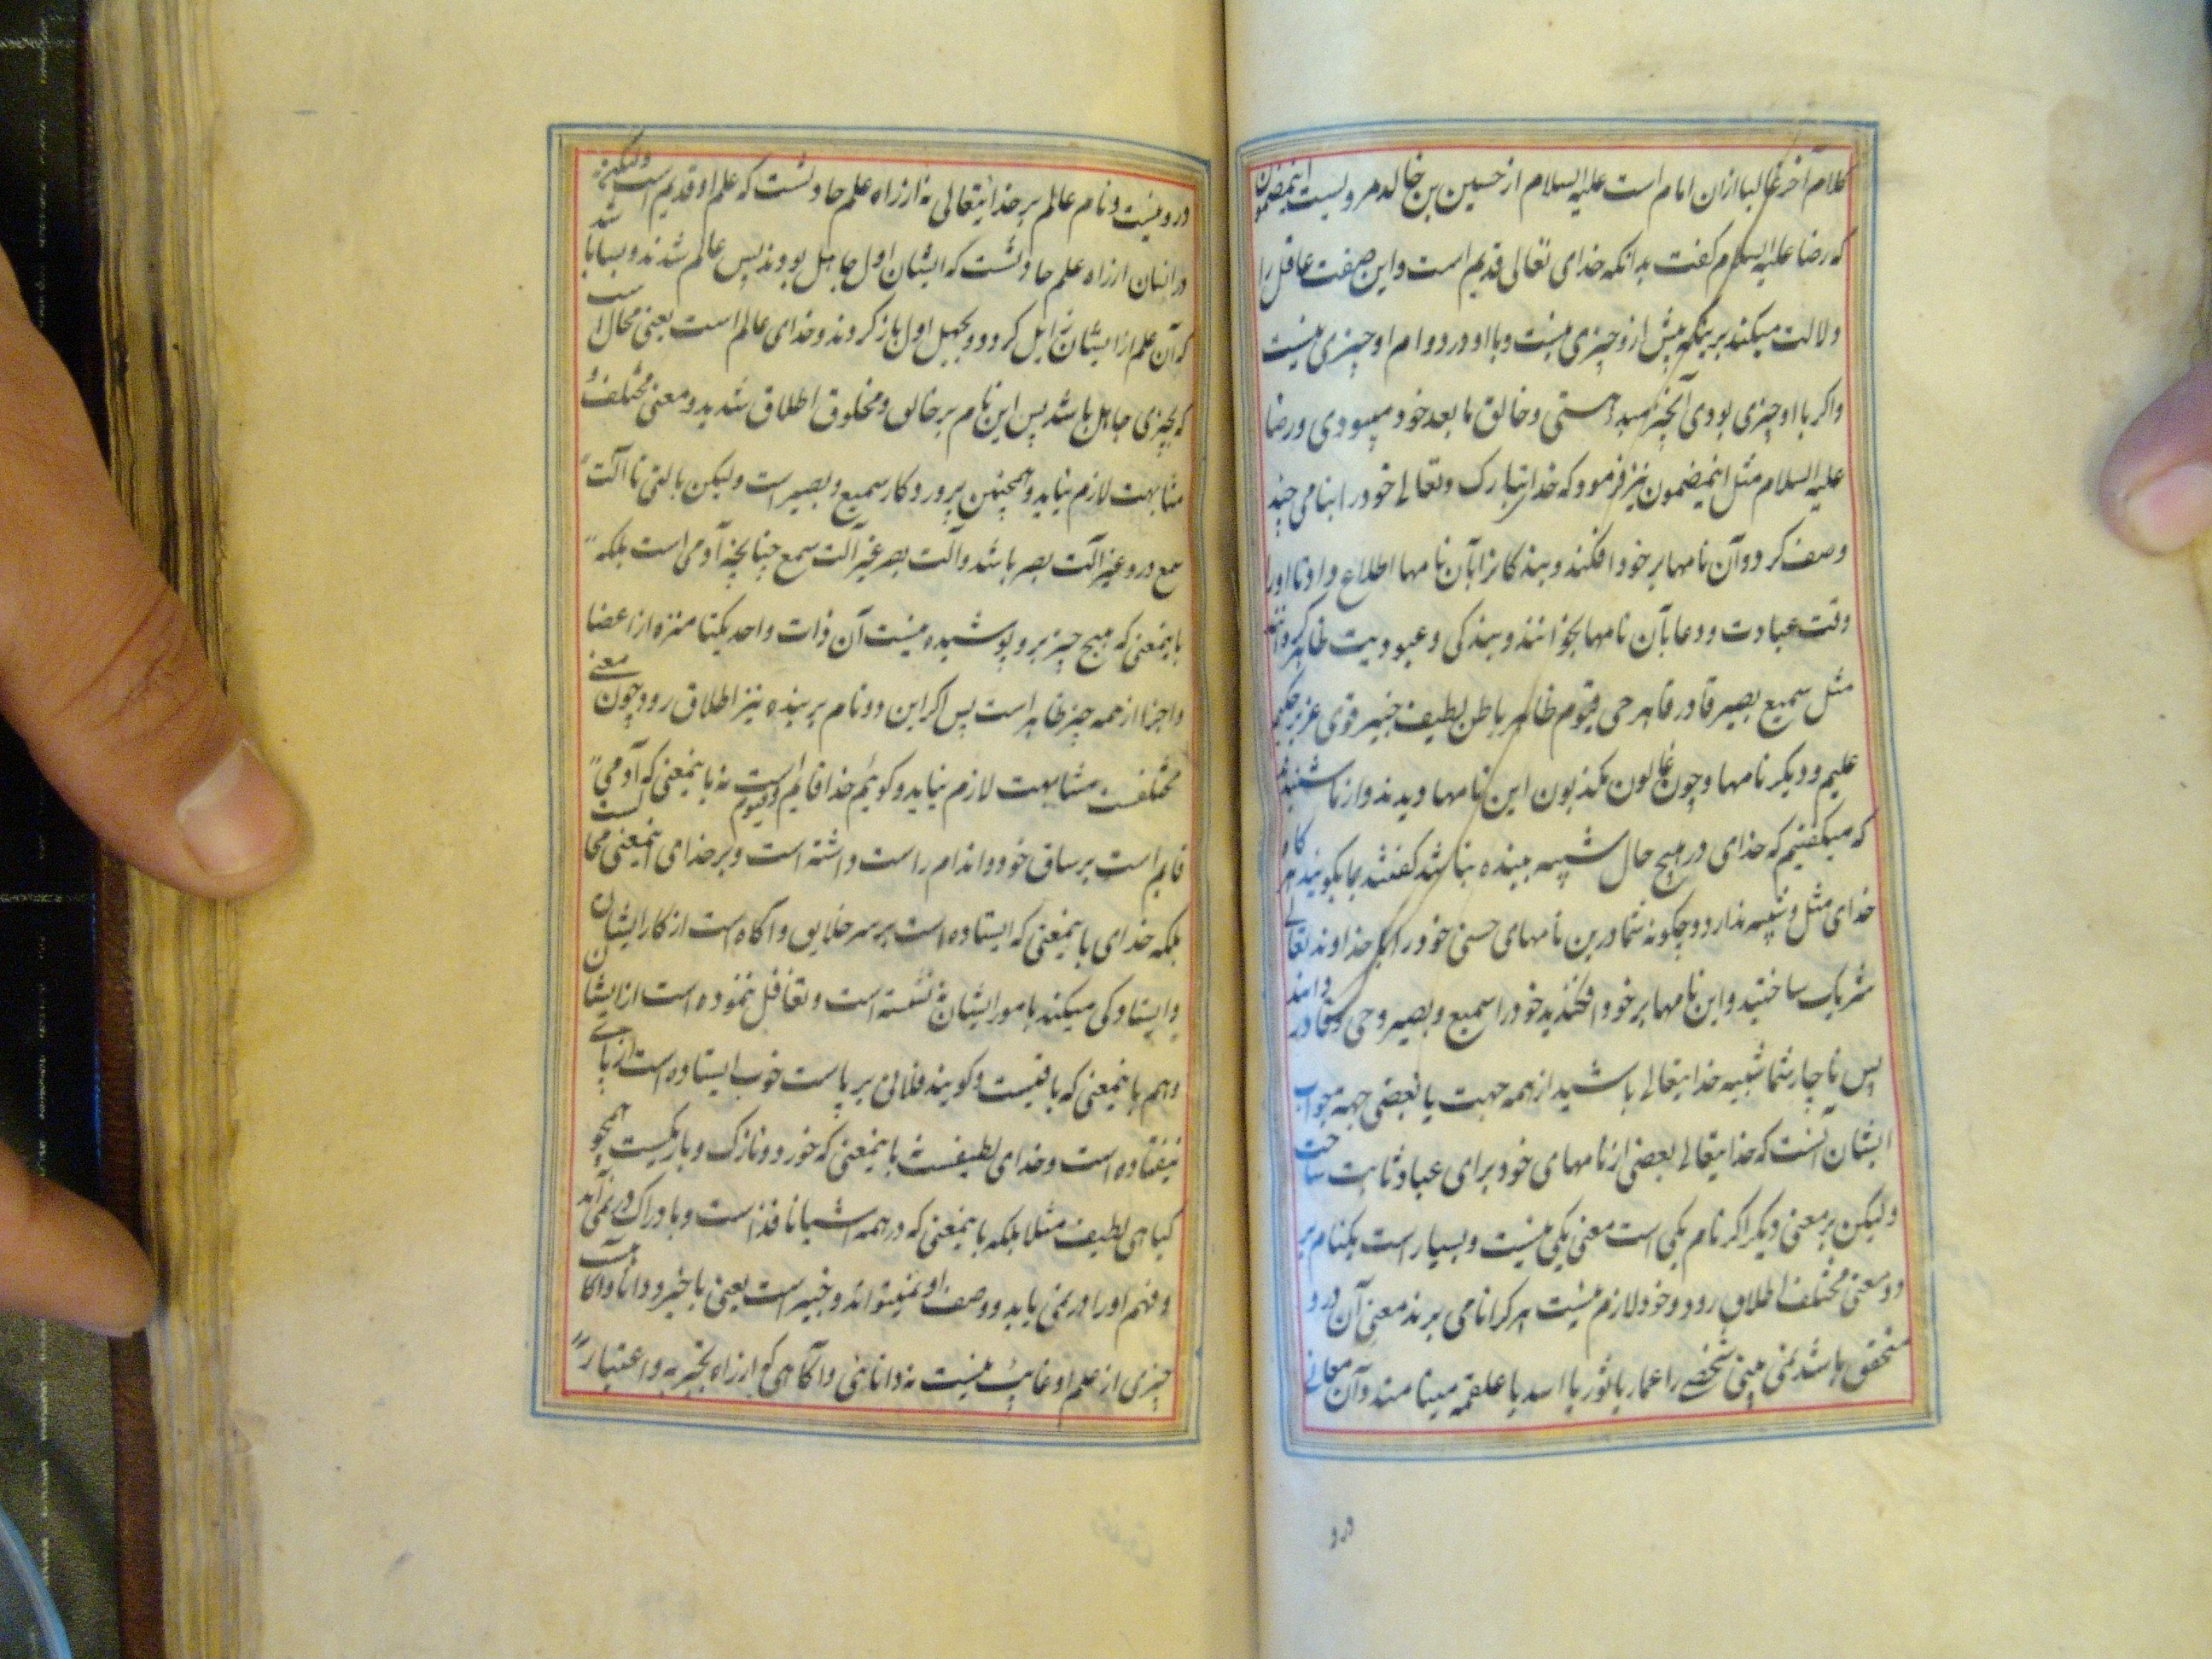 کلام آخر غالبا ازان امام است علیه السلام از حسین بن خالد مرویست اینمضمون
که رضا علیه السلام گفت بدانکه خدای تعالی قدیم است و این صفت عاقل را
دلالت میکند برینکه پیش ازو چیزی نیست و با او در دوام او چیزی نیست
و اکر با او چیزی بودی آنچیز هستی و خالق ما بعد خود میبودی و رضا
علیه السلام مثل اینمضمون نیز فرمود که خدا تبارک و تعالی خود را بنامی چند
وصف کرد و آن نامها بر خود افکند و بندکانرا بآن نامها اطلاع داد تا او را
وقت عبادت و دعا بآن نامها بخوانند و بندکی و عبودیت ظاهر کردانند
مثل سمیع بصیر قادر قاهر حی قیوم ظاهر باطن لطیف خبیر قوی عزیز حکیم
علیم و دیکر نامها و چون غالون مکذبون این نامها دیدند و از ما شنیدند
که میکفتیم که خدای در هیچ حال شبیه بنده نباشد کفتند بما بکویید هر کاه
خدای مثل و شبیه ندارد چکونه شما درین نامهای حسنی خود را با خداوند تعالی
شریک ساختید و این نامها بر خود افکندید خود را سمیع و بصیر و حی و قادر دانید
پس ناچار شما شبیه خدایتعالی باشید از همه جهت یا بعضی جهه جواب
ایشان آنست که خدایتعالی بعضی از نامهای خود برای عباد ثابت ساخت
ولیکن بر معنی دیکر اکر نام یکی است معنی یکی نیست و بسیار است یکنام بر
دو معنی مختلف اطلاق رود و خود لازم نیست هر کرا نامی برند معنی آن درو
متحقق باشد نمی بینی شخصی را عمار یا ثور یا اسد یا علقمه مینامند و آن معانی
درو
درو نیست و نام عالم بر خدایتعالی نه از راه علم حادثست که علم او قدیم است ولیکن
در انسان از راه علم حادثست که ایشان اول جاهل بودند پس عالم شدند و بسا باشد
که آن علم از ایشان زایل کردد و بجهل اول باز کردند و خدای عالم است یعنی محال است
که بچیزی جاهل باشد پس این نام بر خالق و مخلوق اطلاق شد و معنی مختلف و
مشابهت لازم نیاید و همچنین پروردکار سمیع و بصیر است ولیکن بالتی نا آلت
سمع درو غیر آلت بصر باشد و آلت بصر غیر آلت سمع چنانچه آدمی است بلکه
باینمعنی که هیچ چیز برو پوشیده نیست آن ذات واحد یکتا منزه از اعضا
و اجزا از همه چیز ظاهر است پس اکر این دو نام بر بنده نیز اطلاق رود چون معنی
مختلفست مشابهت لازم نیاید و کوئیم خدا قایم و قیوم است نه باینمعنی که آدمی
قایم است بر ساق خود و اندام راست داشته است و بر خدای اینمعنی محالست
بلکه خدای باینمعنی که ایستاده است بر سر خلایق و آکاه است از کار ایشان
و ایستادکی میکند بامور ایشان نشسته است و تغافل ننموده است از ایشان
و هم باینمعنی که باقیست و کویند فلانی بر پاست خوب ایستاده است از پای
نیفتاده است و خدای لطیفست نه باینمعنی که خورد و نازک و باریکست همچو
کیاهی لطیف مثلا بلکه باینمعنی که در همه اشیا نافذ است و بادراک در نمی آید
و فهم او را در نمی یابد و وصف او نمیتواند و خبیر است یعنی با خبر و دانا و آکاهست
چیزی از علم او غایب نیست نه دانائی و آکاهی که از راه تجربه و اعتبار